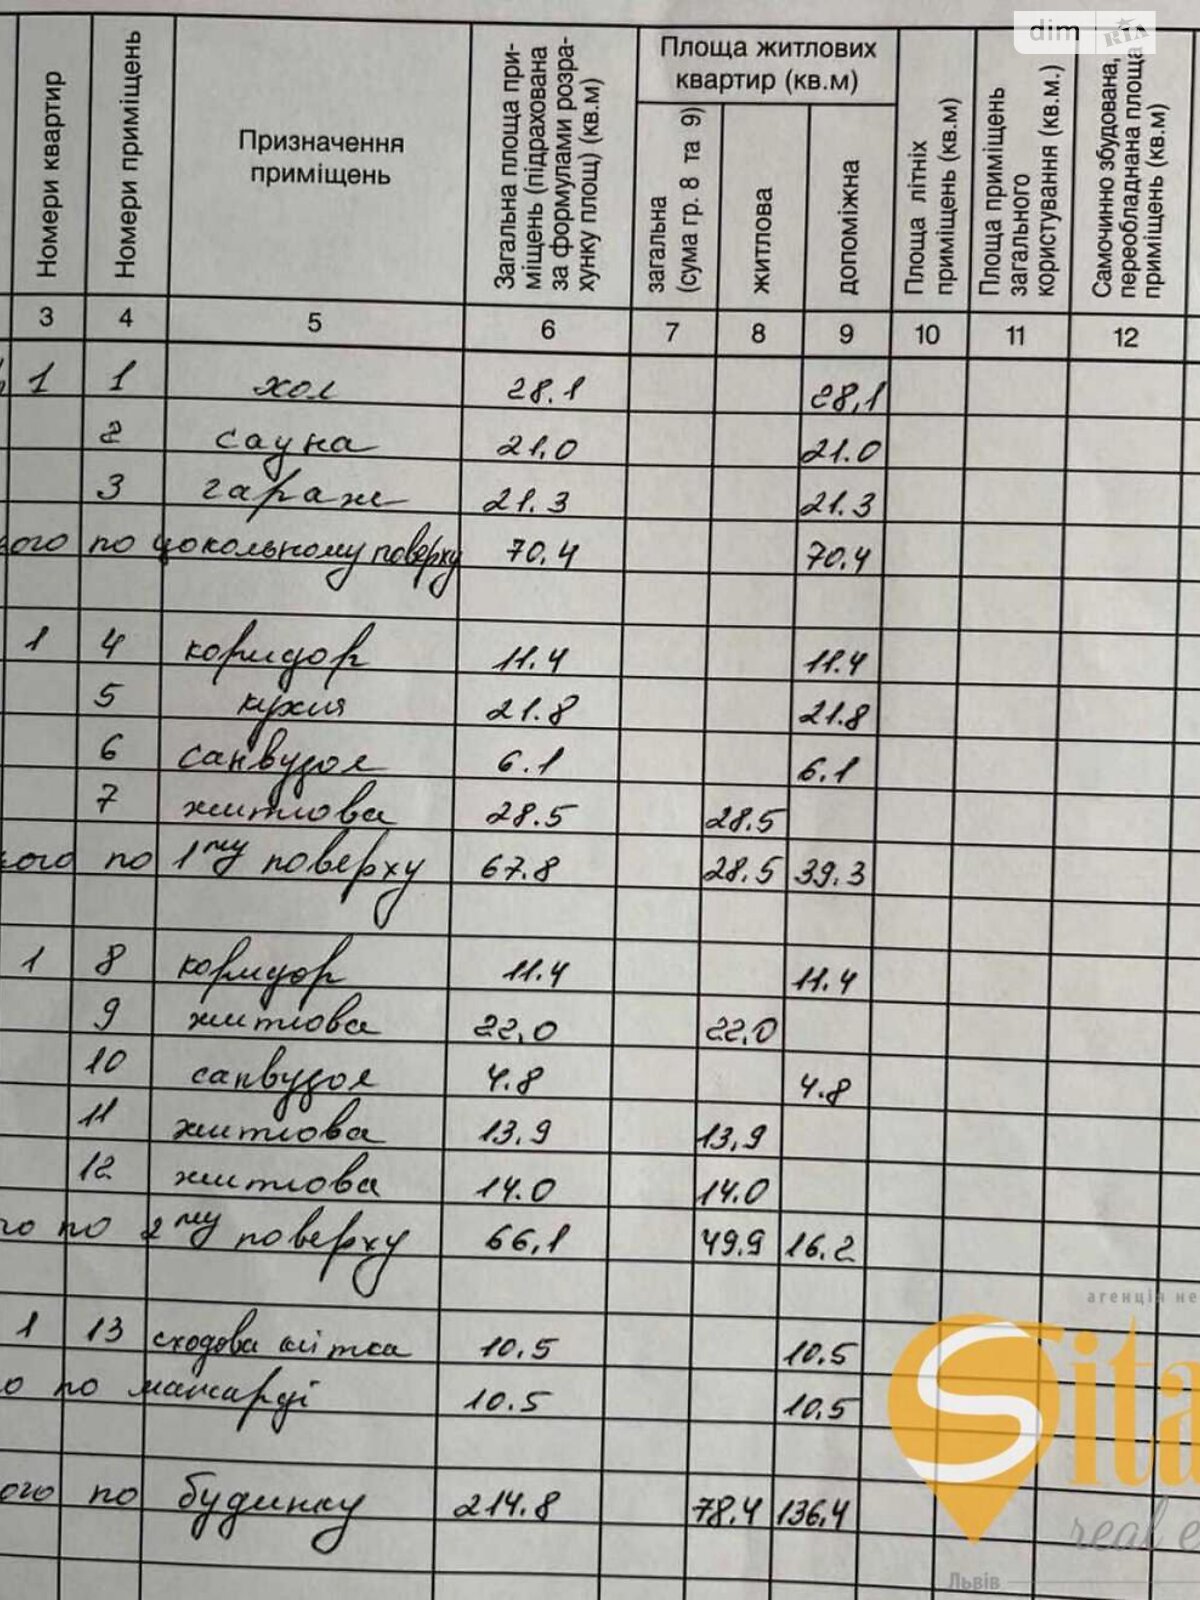 dim RIA
Номери квартир
Номери приміщень
Призначення приміщень
Загальна площа при-
міщень (підрахована
за формулами розра-
хунку площ) (кв.м)
Площа житлових
квартир (кв.м)
загальна
(сума гр. 8 та 9)
житлова
допоміжна
Площа літніх
приміщень (кв.м)
Площа приміщень
загального
користування (кв.м.)
Самочинно збудована,
переобладнана площа
приміщень (кв.м)
3 4 5 6 7 8 9 10 11 12
1 1 хол 28.1 28,1
2 сауна 21,0 21.0
3 гараж 21.3 21.3
ього по цокольному поверху 70.4 70.4
1 4 коридор 11.4 11.4
5 кухня 21.8 21.8
6 санвузол 6.1 6.1
7 житлова 28.5 28.5
ього по 1му поверху 67.8 28.5 39.3
1 8 коридор 11.4 11.4
9 житлова 22,0 22,0
10 санвузол 4.8 4.8
11 житлова 13,9 13,9
12 житлова 14.0 14.0
го по 2му поверху 66,1 49.9 16.2
1 13 сходова клітка 10.5 10.5
о по мансарді 10.5 10.5
ого по будинку 214.8 78.4 136,4
агенція не
Sita
real e
Львів